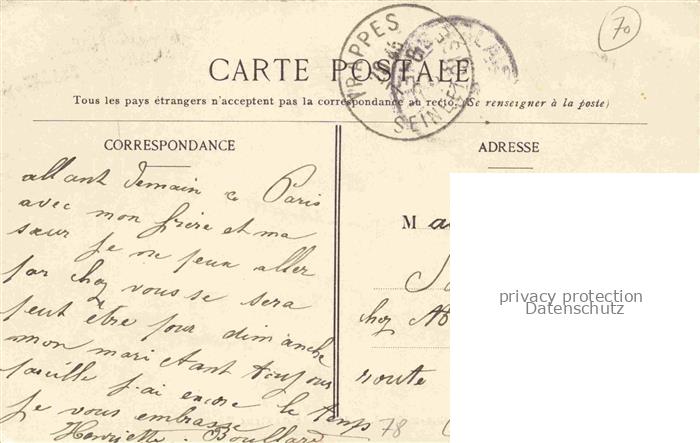 70
TRAPPES
SEINE
CARTE POSTALE
Tous les pays étrangers n'acceptent pas la correspondance au recto. (Se renseigner à la poste)
CORRESPONDANCE
allant demain a Paris
avec mon frère et ma
sœur je ne peux aller
par chez vous se sera
peut être pour dimanche
mon mari étant toujours
pareille j'ai encore le temps
je vous embrasse
Henriette. Boullard
ADRESSE
M
chez
route
78
privacy protection
Datenschutz